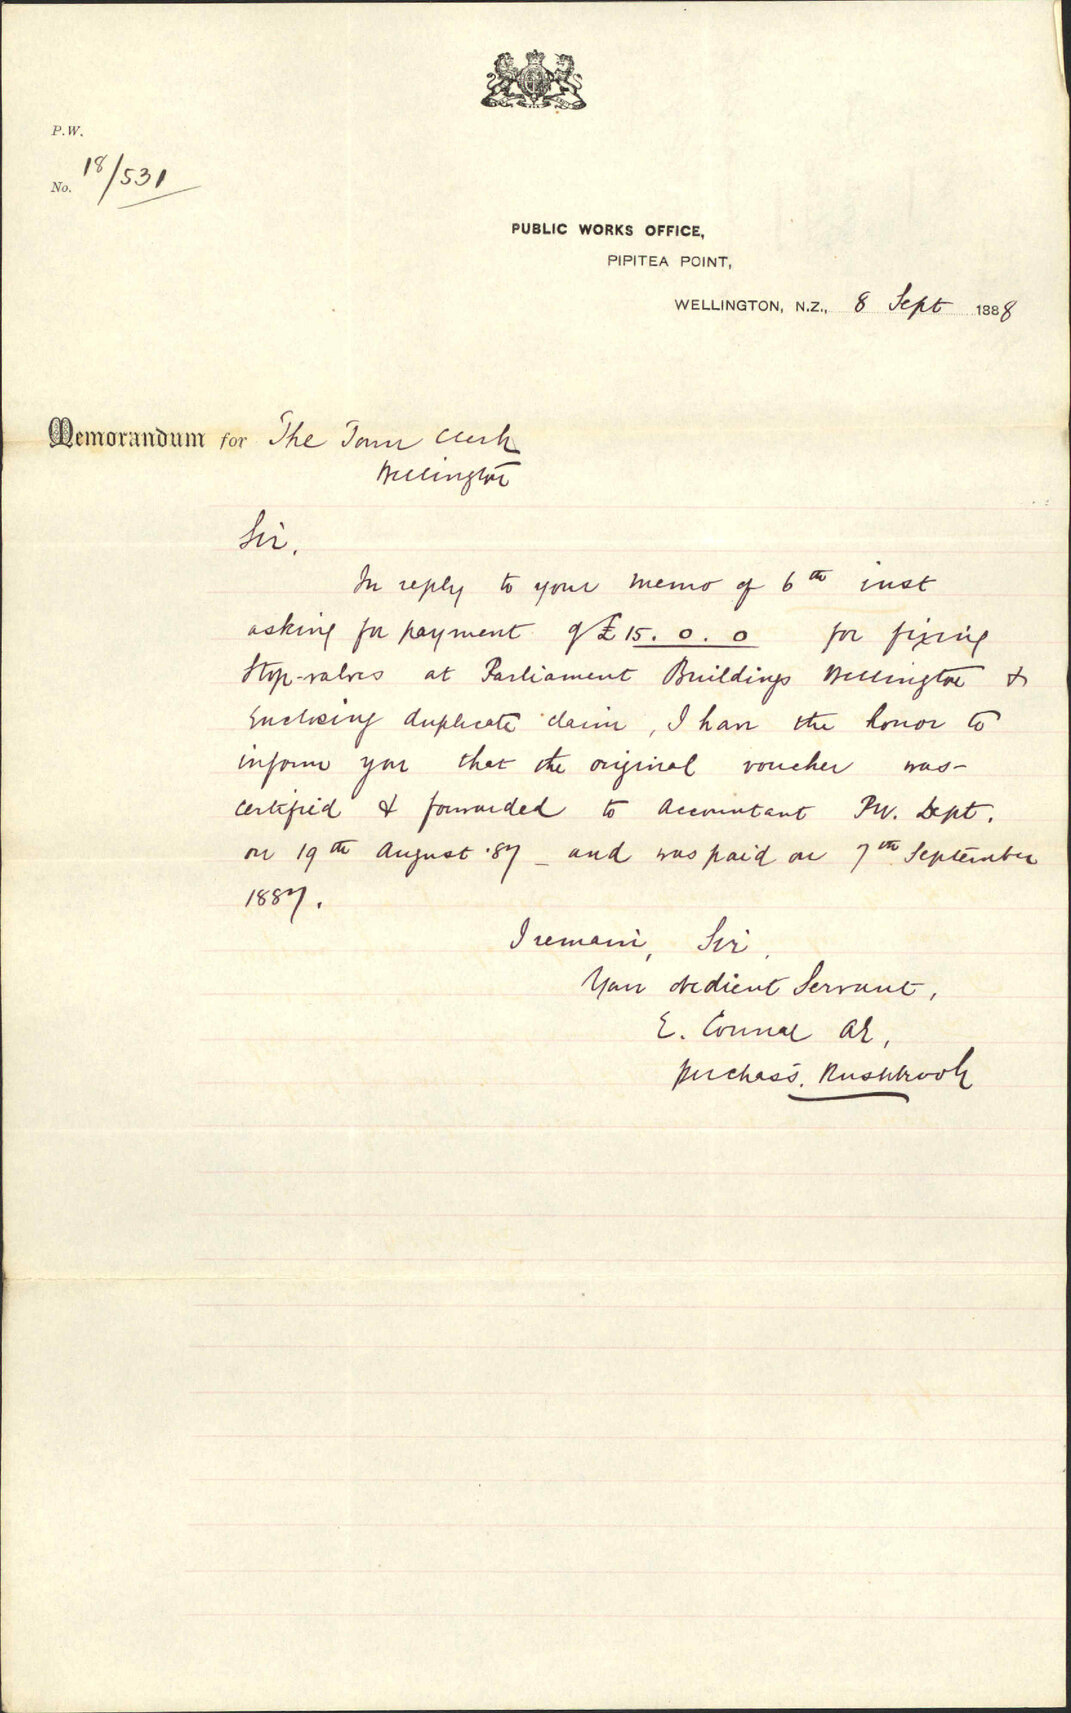 P.W.
No. 18/531
PUBLIC WORKS OFFICE,
PIPITEA POINT,
WELLINGTON, N.Z., 8 Sept 1888
Memorandum for The Town Clerk
Wellington
Sir,
In reply to your memo of 6th inst
asking for payment of £15.0.0 for fixing
Stop-valves at Parliament Buildings Wellington &
Enclosing duplicate claim, I have the honor to
inform you that the original voucher was
certified & forwarded to Accountant PW. Dept.
on 19th August '87 - and was paid on 7th September
1887.
I remain, Sir,
Your obedient Servant,
E.